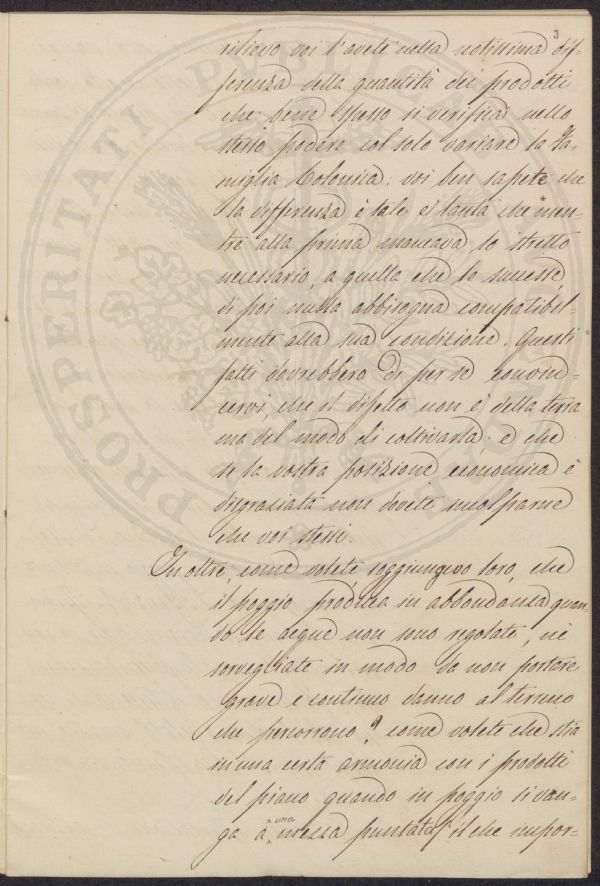 3
rilievo voi l'avete nella notissima dif-
ferenza della quantità dei prodotti
che bene spesso si verifica nello
stesso podere col solo variare la Fa-
miglia Colonica: voi ben sapete che
la differenza è tale e tanta che men-
tre alla prima mancava lo stretto
necessario, a quella che le successe,
di poi nulla abbisogna compatibil-
mente alla sua condizione. Questi
fatti dovrebbero di per se convin-
cervi, che il difetto non è della terra
ma del modo di coltivarla, e che
se la vostra posizione economica è
disgraziata non dovete incolparne
che voi stessi.
In oltre, come volete, soggiungevo loro, che
il poggio produca in abbondanza quan-
do le acque non sono regolate, nè
sorvegliate in modo da non portare
grave e continuo danno al terreno
che percorrono? come volete che stia
in una certa armonia con i prodotti
del piano quando in poggio si van-
ga a una mezza puntata? il che impor-
PROSPERITATI PUBLICAE